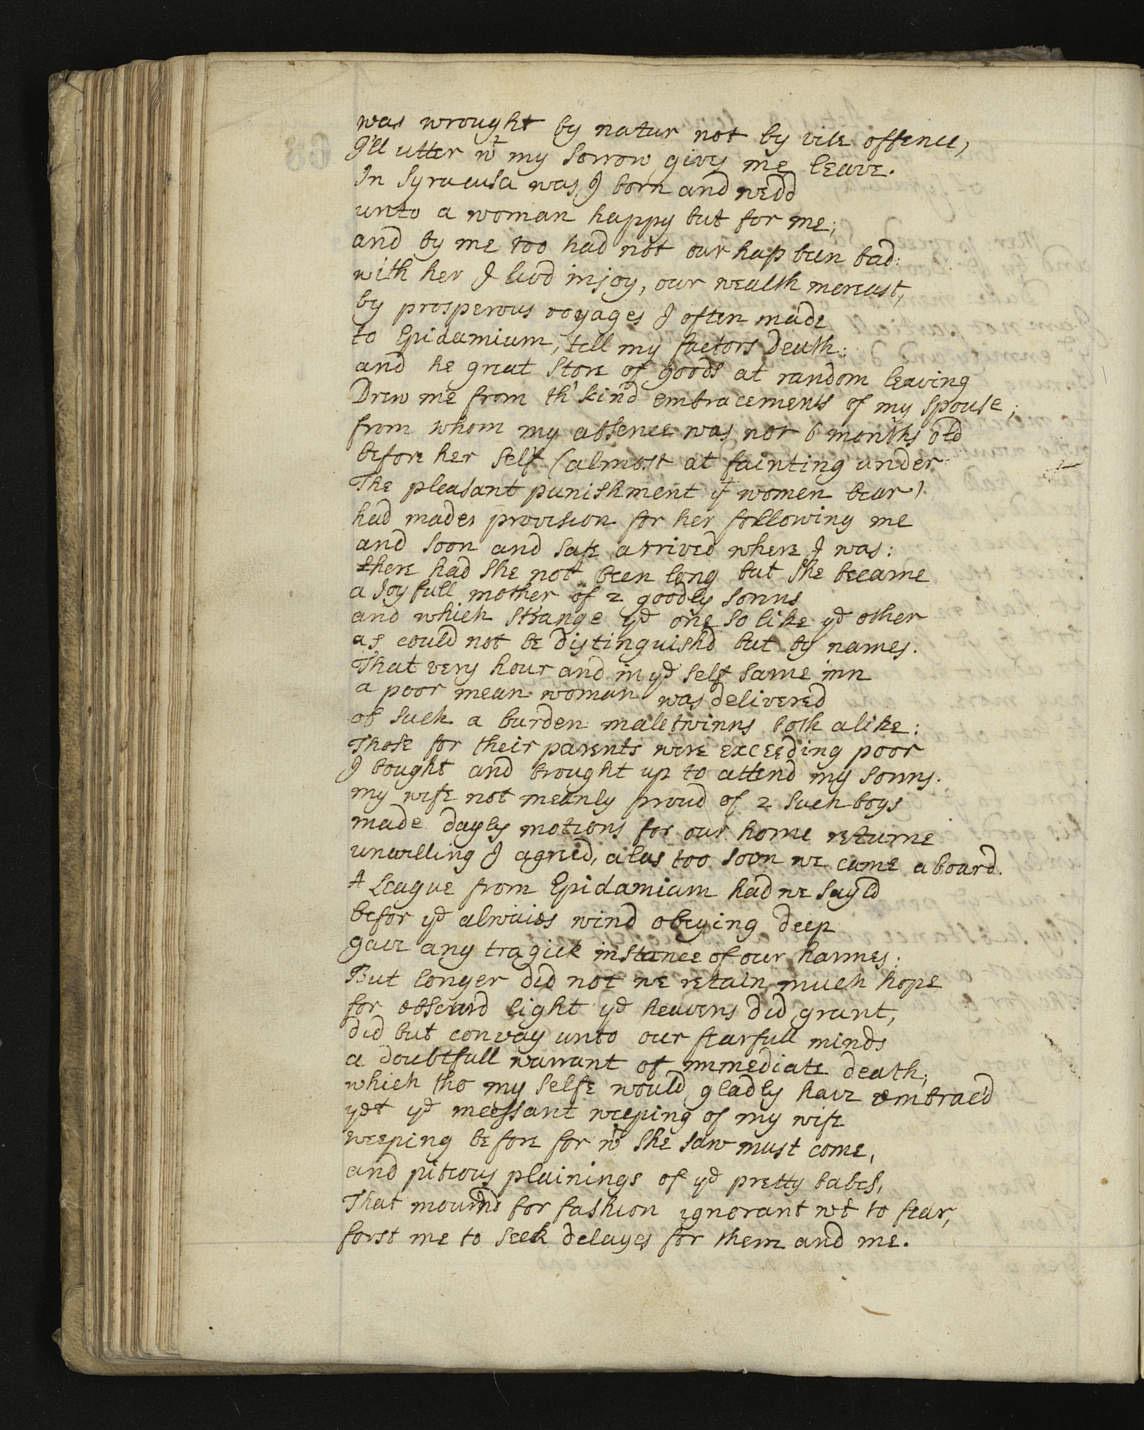 was wrought by natur not by vile offence,
I'll utter wt my sorrow givs me leave.
In Syracusa was I born and wedd
unto a woman happy but for me;
and by me too had not our hap been bad:
with her I livd in joy, our wealth increast,
by prosperous voyages I often made
to Epidamium, tell my factors Death:
and he great store of goods at random leaving
Drew me from th' kind embracements of my spouse;
from whom my absence was not 6 months old
before her self (almost at fainting under
The pleasant punishment yt women bear)
had made provision for her following me
and soon and safe arrived where I was:
there had she not been long but she became
a Joyfull mother of 2 goodly sonns
and which strange ye one so like ye other
as could not be Distinguishd but by names.
That very hour and in ye self same inn
a poor mean woman was delivered
of such a burden male twinns both alike:
Those for their parents were exceeding poor
I bought and brought up to attend my sonns.
my wife not meanly proud of 2 such boys
made dayly motions for our home returne
unwilling I agreed, alas too soon we came aboard.
A League from Epidamium had we sayld
befor ye alwaies wind obeying deep
gave any tragick instance of our harmes:
But longer did not we retain much hope
for obscurd light ye heavens did grant,
did but convay unto our fearfull minds
a doubtfull warrant of immediate death;
which tho my selfe would gladly have embrac'd
yet ye incessant weeping of my wife
weeping before for wt she saw must come,
and piteous plainings of ye pretty babes,
That mournd for fashion ignorant wt to fear,
forst me to seek delayes for them and me.